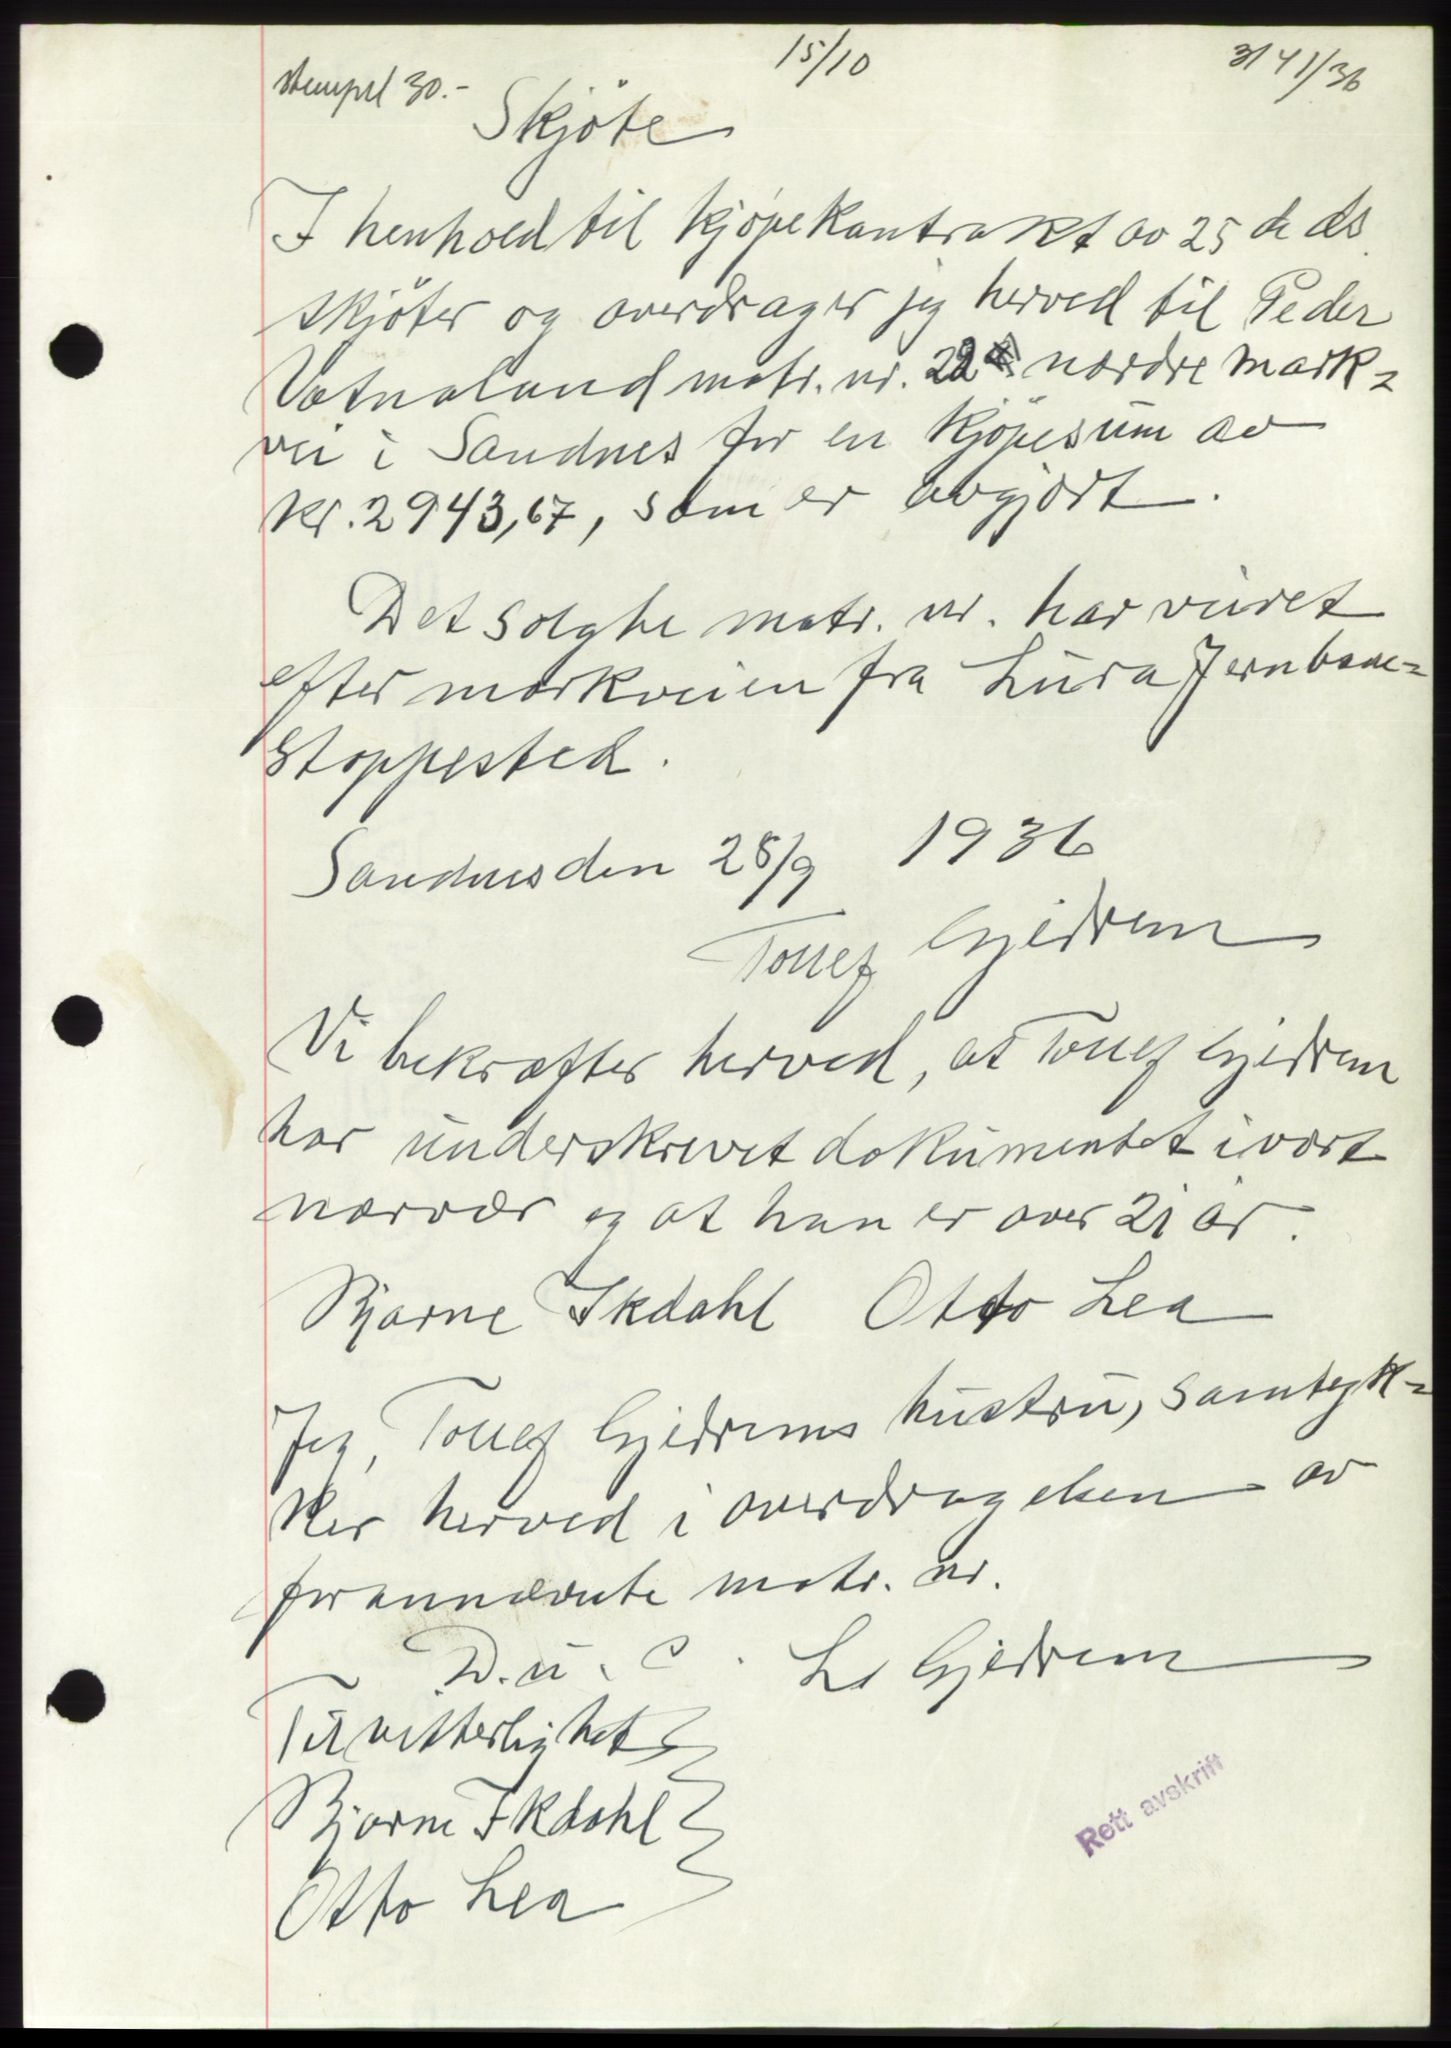 15/10
3141/36
Stempel 30.-
Skjöte
I henhold til kjöpekontrakt av 25 de ds.
skjöter og overdrager jeg herved til Peder
Vatnaland matr. nr. 22 nordre mark=
vei i Sandnes for en kjöpesum av
kr. 2943,67, som er avgjort.
Det solgte matr. nr. har veiret
efter markveien fra Lura Jernbane=
stoppested.
Sandnes den 28/9 1936
Tollef Gjedrem
Vi bekræfter herved, at Tollef Gjedrem
har underskrevet dokumentet i vort
nærvær og at han er over 21 år.
Bjarne Ikdahl Otto Lea
Jeg, Tollef Gjedrems hustru, samtyk=
ker herved i overdragelsen av
forannævnte matr. nr.
D. u. s. L. Gjedrem
Til vitterlighet
Bjarne Ikdahl
Otto Lea
Rett avskrift